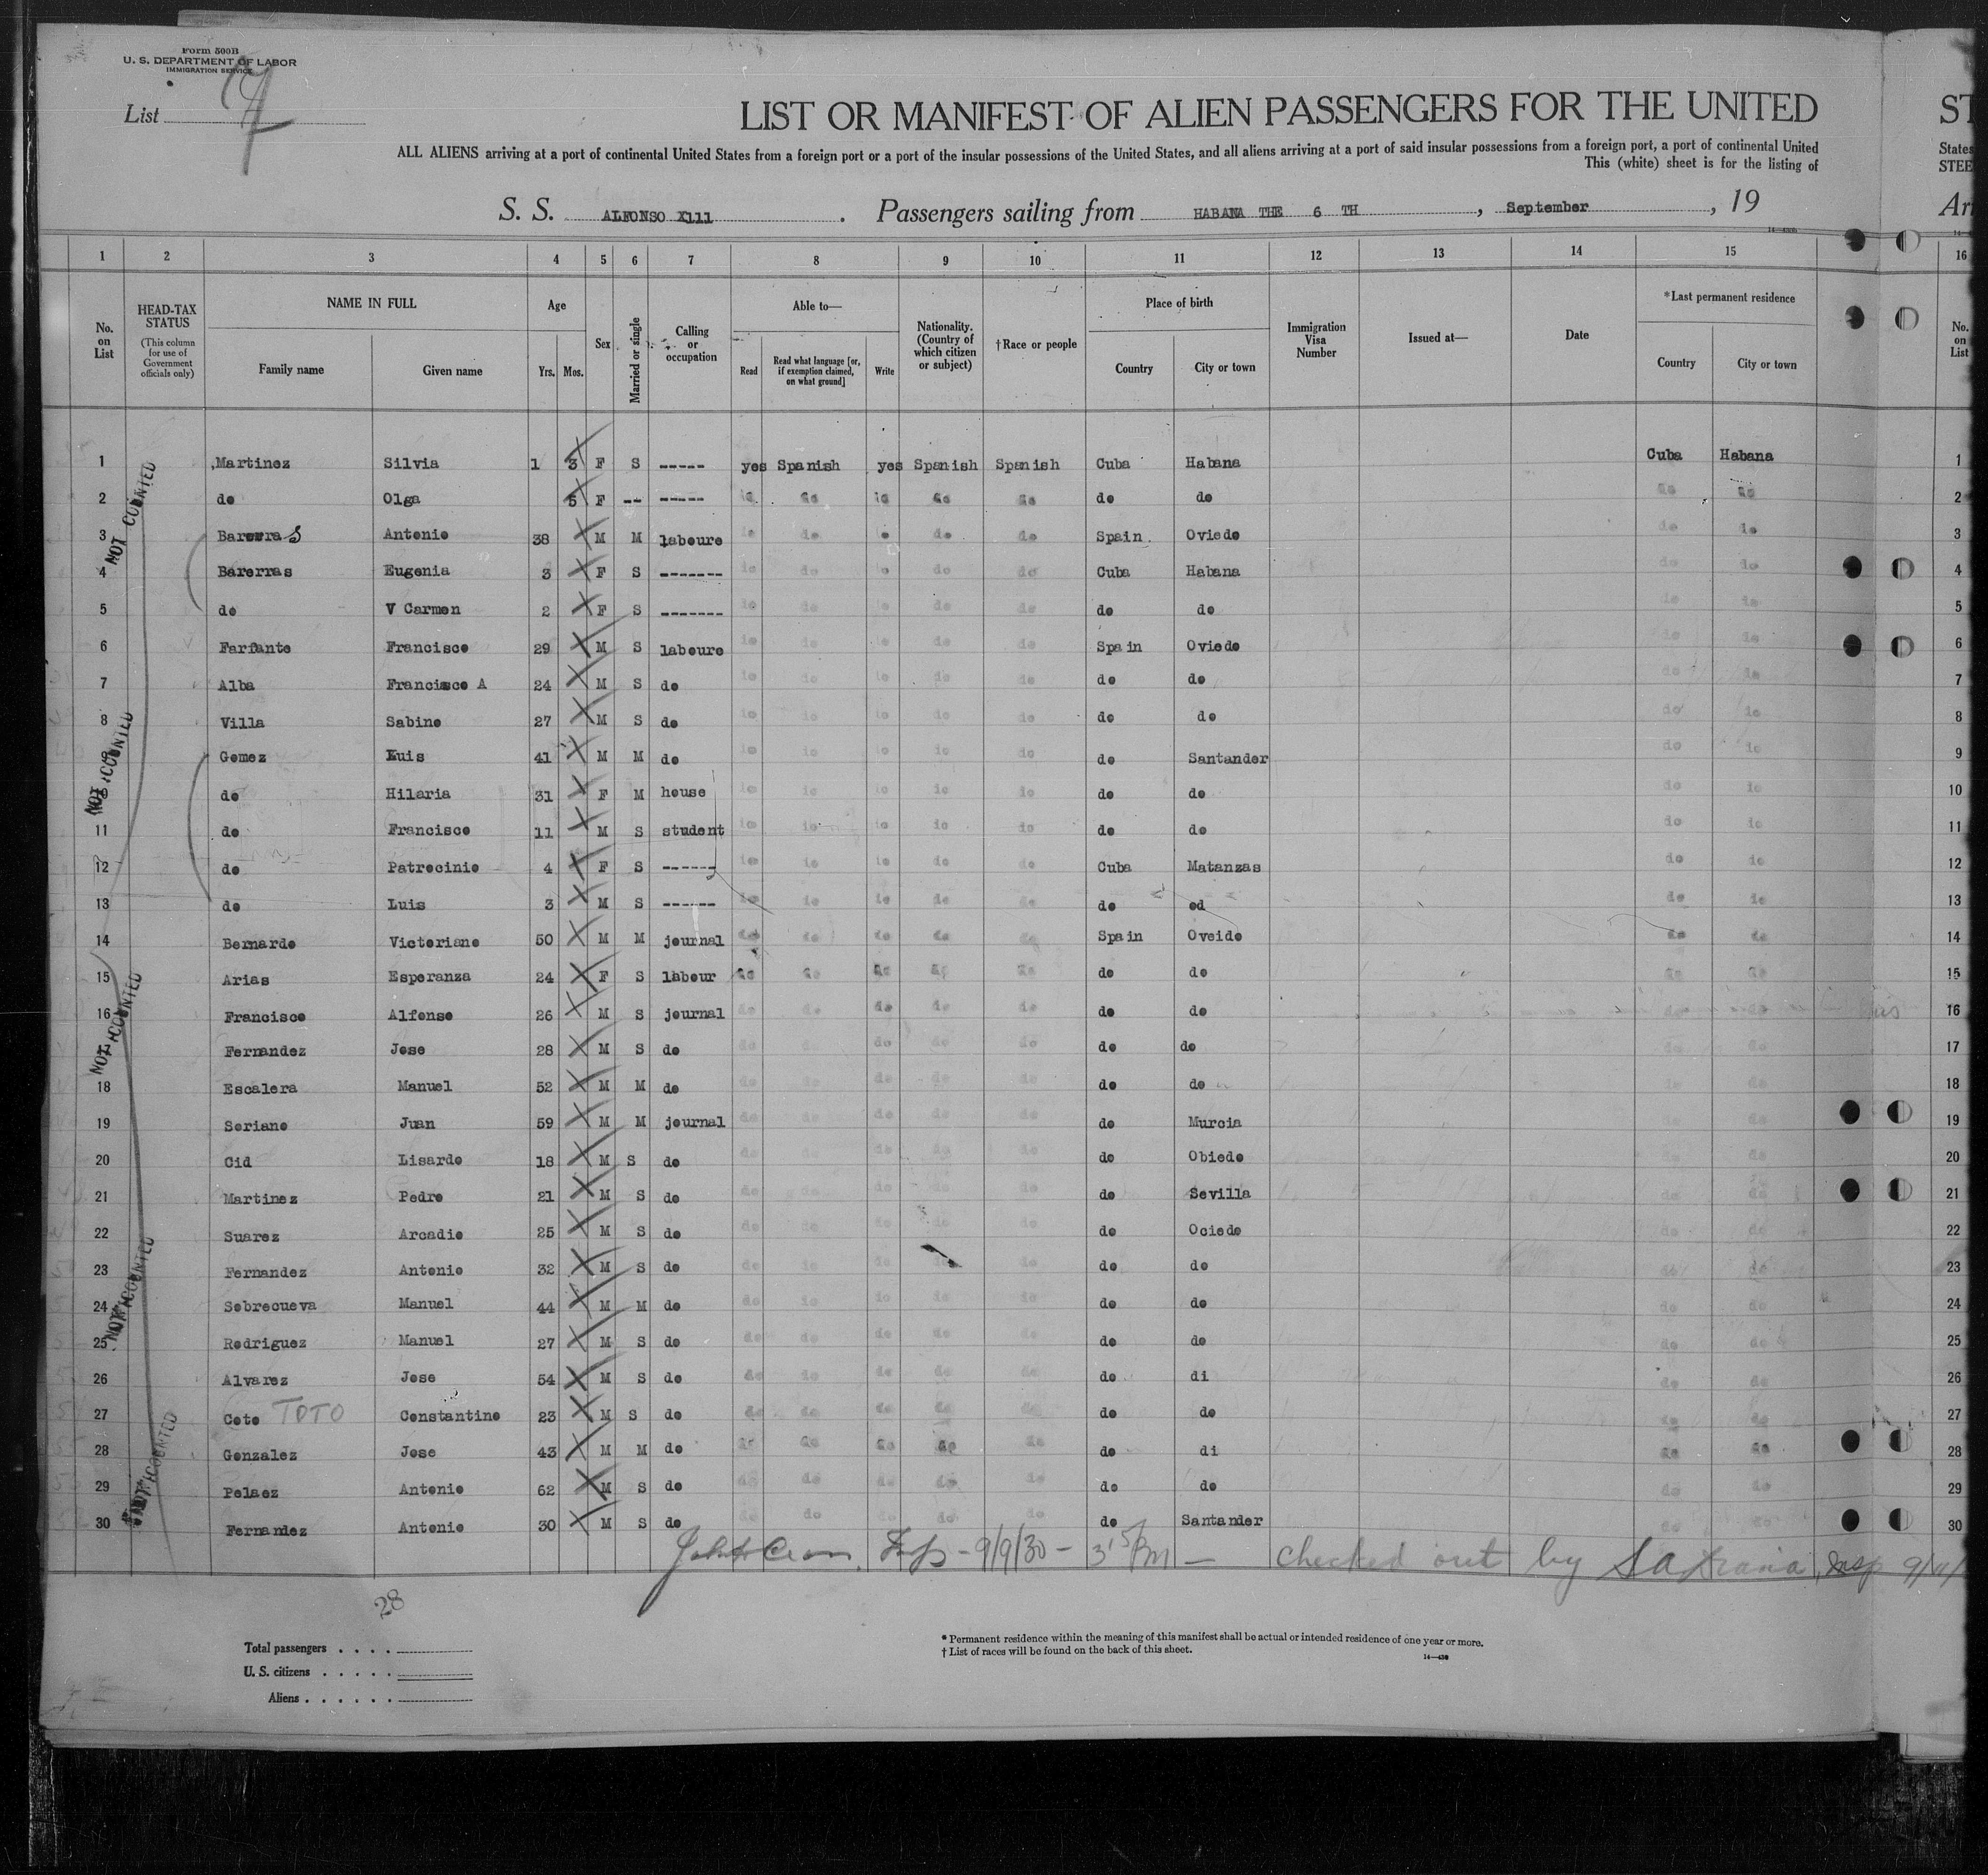 Form 500B
U. S. DEPARTMENT OF LABOR
IMMIGRATION SERVICE
List
LIST OR MANIFEST OF ALIEN PASSENGERS FOR THE UNITED ST
ALL ALIENS arriving at a port of continental United States from a foreign port or a port of the insular possessions of the United States, and all aliens arriving at a port of said insular possessions from a foreign port, a port of continental United States
This (white) sheet is for the listing of STEE
S. S. ALFONSO X111 . Passengers sailing from HABANA THE 6 TH , September , 19 Arr
1 2 3 4 5 6 7 8 9 10 11 12 13 14 15 16
No. on List HEAD-TAX STATUS (This column for use of Government officials only) NAME IN FULL Family name Given name Age Yrs. Mos. Sex Married or single Calling or occupation Able to— Read Read what language [or, if exemption claimed, on what ground] Write Nationality. (Country of which citizen or subject) †Race or people Place of birth Country City or town Immigration Visa Number Issued at— Date *Last permanent residence Country City or town No. on List
1 Martinez Silvia 1 3 F S ----- yes Spanish yes Spanish Spanish Cuba Habana Cuba Habana 1
2 do Olga 5 F -- ----- do do do do do do do do do 2
3 Barerras Antonio 38 M M laboure do do do do Spain Oviedo do do 3
4 Barerras Eugenia 3 F S ------- do do do do do Cuba Habana do do 4
5 do V Carmen 2 F S ------- do do do do do do do do 5
6 Farfante Francisco 29 M S laboure do do do do do Spain Oviedo do do 6
7 Alba Francisco A 24 M S do do do do do do do do do do 7
8 Villa Sabino 27 M S do do do do do do do do do do 8
9 Gomez Luis 41 M M do do do do do do do Santander do do 9
10 do Hilaria 31 F M house do do do do do do do do do 10
11 do Francisco 11 M S student do do do do do do do do do 11
12 do Patrocinio 4 F S ------ do do do do do Cuba Matanzas do do 12
13 do Luis 3 M S ------ do do do do do do od do do 13
14 Bernardo Victoriano 50 M M journal do do do do do Spain Oveido do do 14
15 Arias Esperanza 24 F S labour do do do do do do do do do 15
16 Francisco Alfonso 26 M S journal do do do do do do do do do 16
17 Fernandez Jose 28 M S do do do do do do do do do do 17
18 Escalera Manuel 52 M M do do do do do do do do do do 18
19 Soriano Juan 59 M M journal do do do do do do Murcia do do 19
20 Cid Lisardo 18 M S do do do do do do do Obiedo do do 20
21 Martinez Pedro 21 M S do do do do do do do Sevilla do do 21
22 Suarez Arcadio 25 M S do do do do do do do Ociedo do do 22
23 Fernandez Antonio 32 M S do do do do do do do do do do 23
24 Sobrecueva Manuel 44 M M do do do do do do do do do do 24
25 Rodriguez Manuel 27 M S do do do do do do do do do do 25
26 Alvarez Jose 54 M S do do do do do do do di do do 26
27 Coto TOTO Constantino 23 M S do do do do do do do do do do 27
28 Gonzalez Jose 43 M M do do do do do do do di do do 28
29 Pelaez Antonio 62 M S do do do do do do do do do do 29
30 Fernandez Antonio 30 M S do do do do do do do Santander do do 30
NOT COUNTED
NOT COUNTED
NOT COUNTED
NOT COUNTED
NOT COUNTED
9/9/30 - 3 15 PM — checked out by Insp 9/11/
28
Total passengers . . . .
U. S. citizens . . . . .
Aliens . . . . . .
* Permanent residence within the meaning of this manifest shall be actual or intended residence of one year or more.
† List of races will be found on the back of this sheet.
14—430